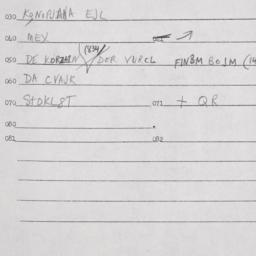 030 KONOPLJANA EJL
040 MEX
050 DE KORZAAN (834) DER VURCL FINBM BOJM (14
060 DA CVAJK
070 STOKL8T 071 + QR
080
081 082